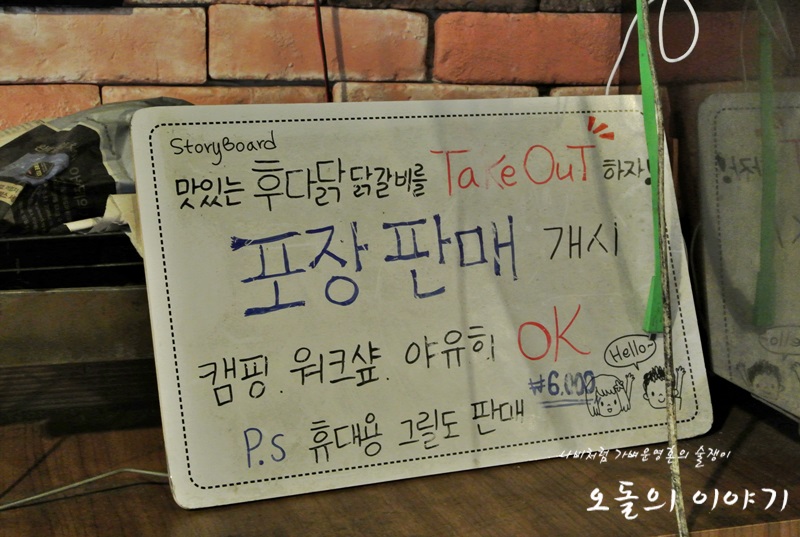 StoryBoard
맛있는 후다닭 닭갈비를 Take OuT 하자!
포장 판매 개시
캠핑. 워크샾. 야유회 OK
₩6.000
Hello~
P.s 휴대용 그릴도 판매
나비처럼 가벼운영혼의 술쟁이
오돌의 이야기